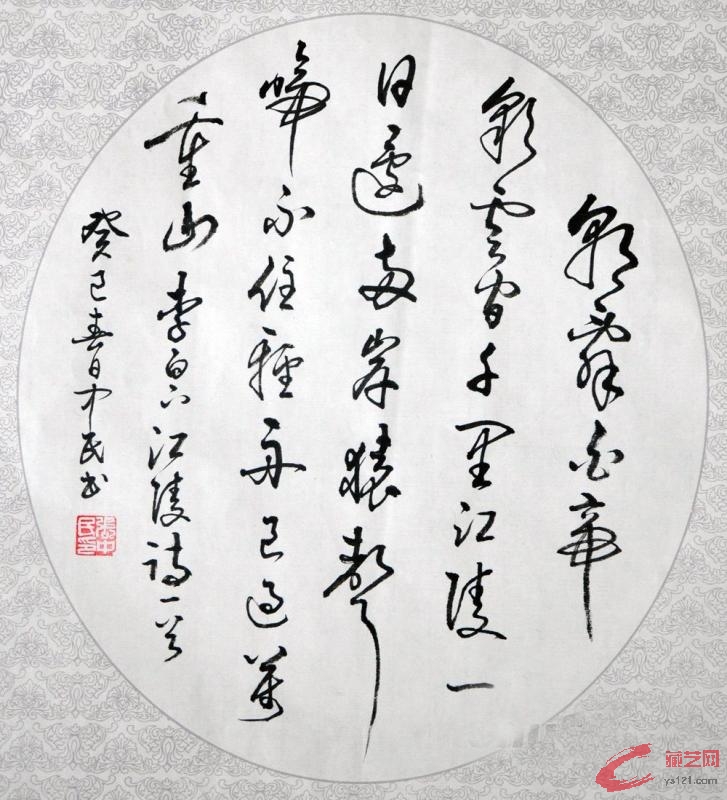 朝辭白帝
彩雲間千里江陵一
日還兩岸猿聲
啼不住輕舟已過萬
重山 李白下江陵詩一首
癸巳春日中民書
張中民印
藏艺网
ys121.com